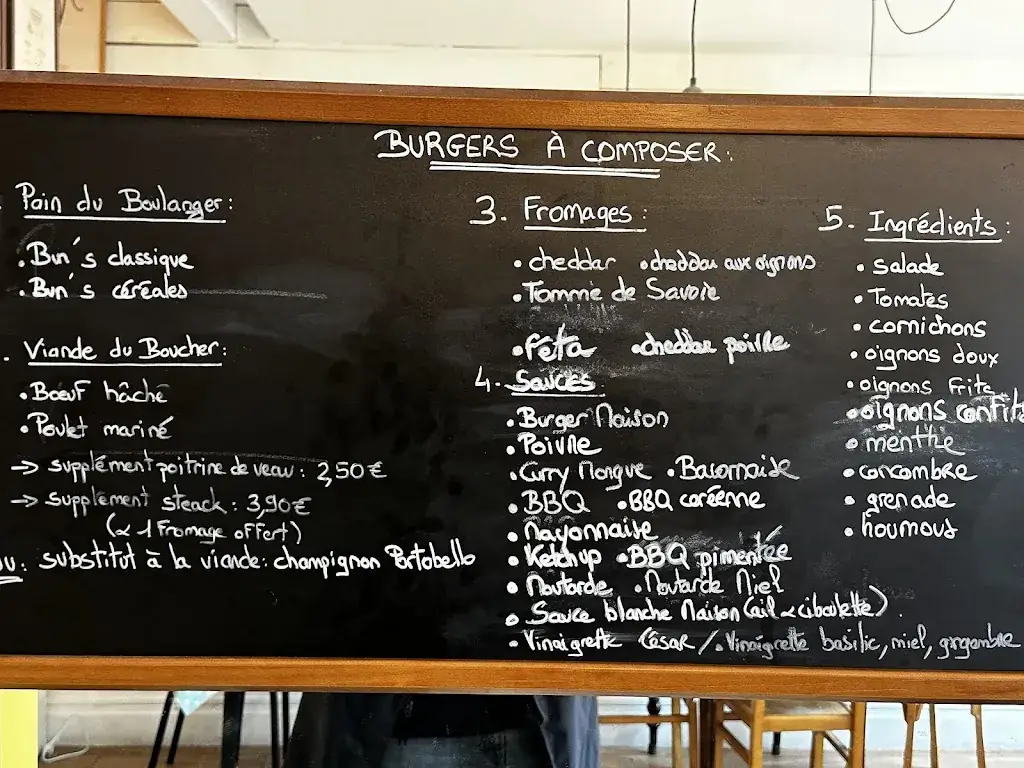 BURGERS À COMPOSER:
Pain du Boulanger:
• Bun's classique
• Bun's céréales
. Viande du Boucher:
• Boeuf hâché
• Poulet mariné
→ supplément poitrine de veau: 2,50€
→ supplément steack: 3,90€
(& 1 Fromage offert)
ou: substitut à la viande: champignon Portobello
3. Fromages:
• cheddar • cheddar aux oignons
• Tomme de Savoie
• Feta • cheddar poivre
4. Sauces
• Burger Maison
• Poivre
• Curry Mangue • Baconnaise
• BBQ • BBQ coréenne
• Mayonnaise
• Ketchup • BBQ pimentée
• Moutarde • Moutarde Miel
• Sauce blanche Maison (ail & ciboulette).
• Vinaigrette César / • Vinaigrette basilic, miel, gingembre
5. Ingrédients:
• salade
• Tomates
• cornichons
• oignons doux
• oignons frits
• oignons confits
• menthe
• concombre
• grenade
• houmous